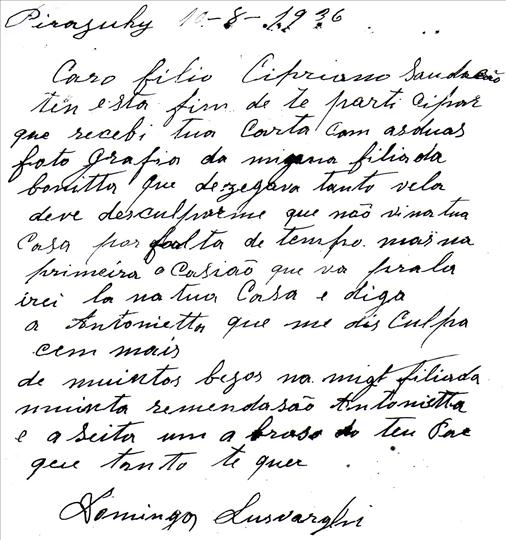 Pirazuhy 10-8-1936
Caro filio Cipriano Saudacão
tin esta fim de te parti cipar
que recebi tua Carta com asduas
foto grafia da migna filiada
bonitta que dezegava tanto vela
deve desculparme que não vinatua
Casa por falta de tempo. mas na
primeira o Casião que va prala
irei la na tua Casa e diga
a Antonietta que me dis Culpa
cem mais
de muintos bezos na migt filiada
muinta remendasão Antonietta
e a seita um a braso do teu Pae
que tanto te quer
Domingos Lusvarghi